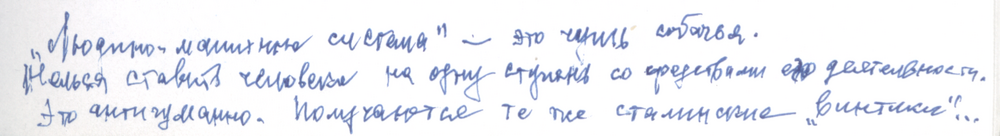 „Людино-машинная система" – это чушь собачья.
Нельзя ставить человека на одну ступень со средствами его деятельности.
Это антигуманно. Получаются те же сталинские „винтики"...